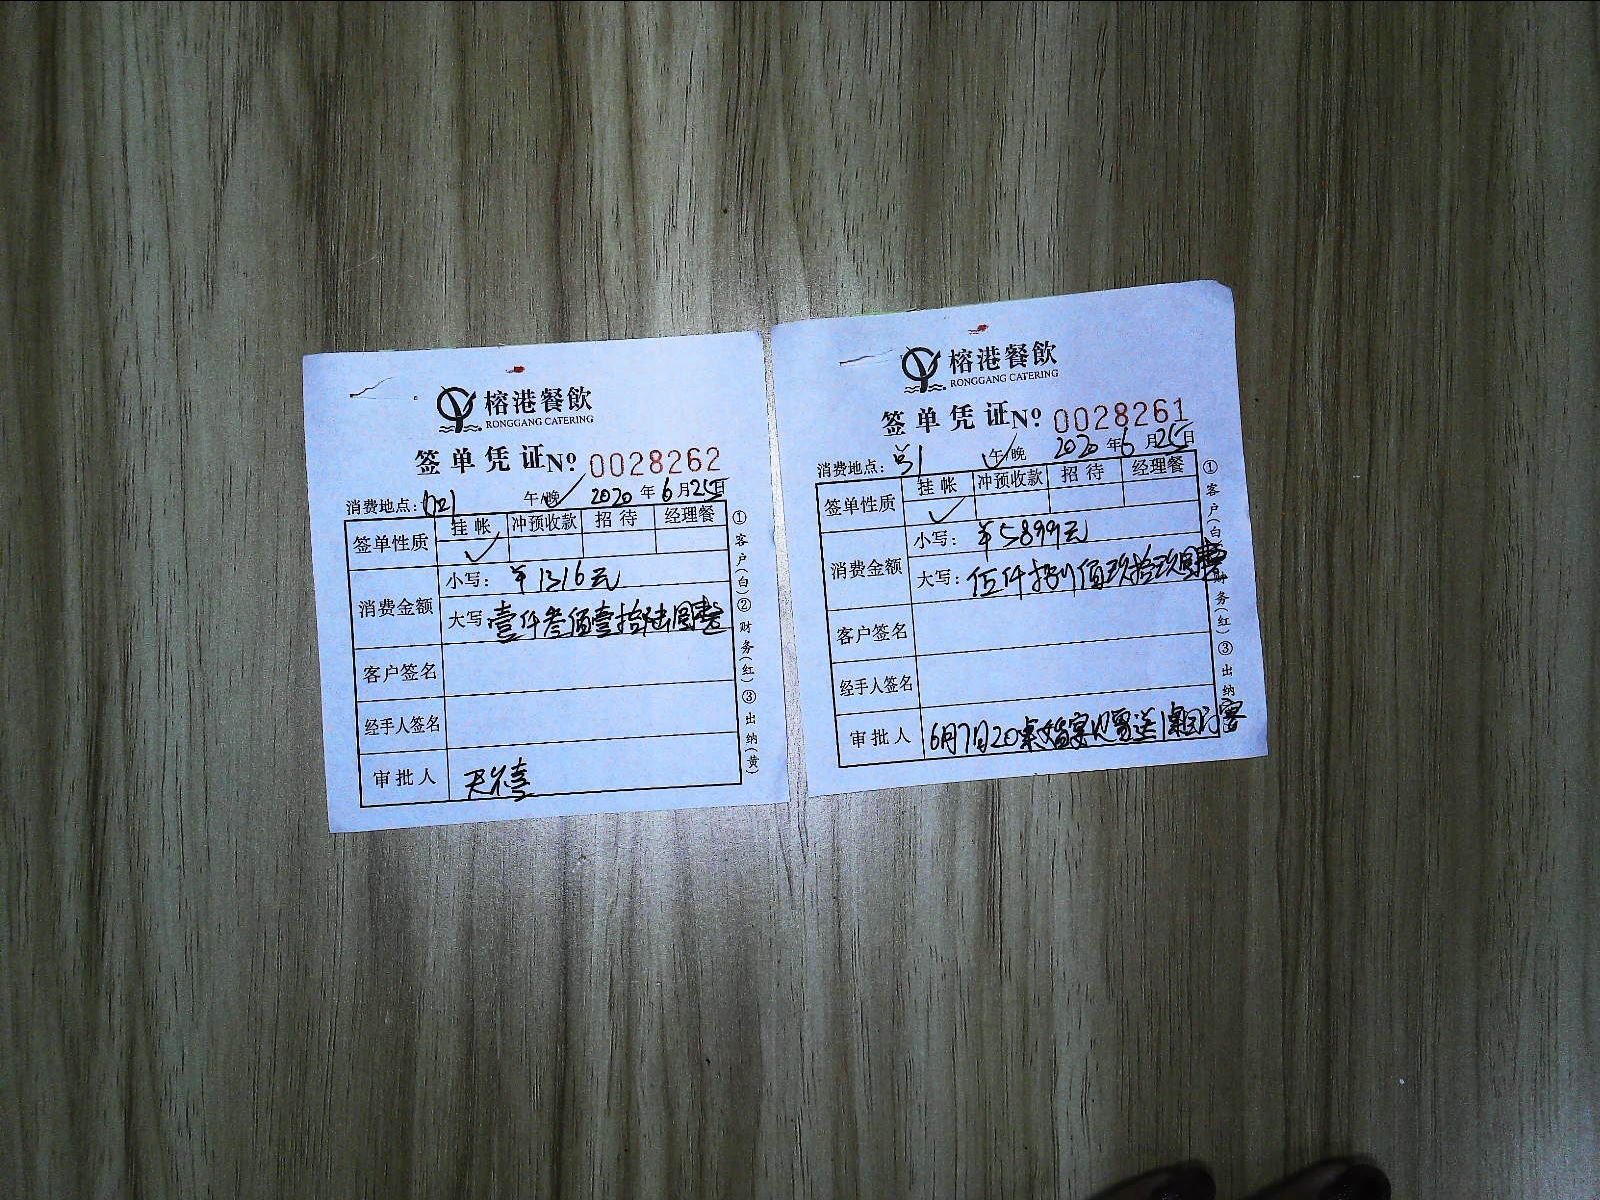 榕港餐飲
RONGGANG CATERING
签单凭证 No. 0028262
消费地点： 午/晚 2020年6月25日
签单性质 挂帐 冲预收款 招待 经理餐
消费金额
小写：¥1316元
大写 壹仟叁佰壹拾陆圆整
客户签名
经手人签名
审批人
①客户(白)②财务(红)③出纳(黄)
榕港餐飲
RONGGANG CATERING
签单凭证 No. 0028261
消费地点： 午/晚 2020年6月25日
签单性质 挂帐 冲预收款 招待 经理餐
消费金额
小写：¥5899元
大写：伍仟捌佰玖拾玖圆整
客户签名
经手人签名
审批人 6月7日20桌婚宴
①客户(白 财务(红)③出纳